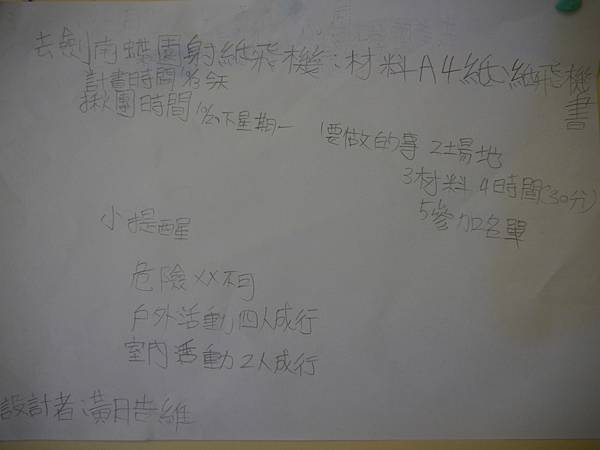 去劍南蝶園射紙飛機:材料A4紙、紙飛機書
計畫時間 今天
揪團時間 下星期一
1要做的事 2場地
3材料 4時間(30分)
5參加名單
小提醒
危險××不可
戶外活動四人成行
室內活動2人成行
設計者:黃 維